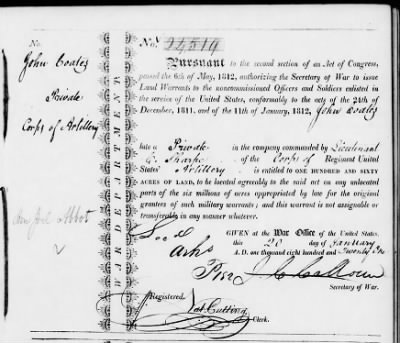 No.
John Coates
Private
Corps of Artillery
2
WAR DEPARTMENT
No. 24519
Pursuant to the second section of an Act of Congress,
passed the 6th of May, 1812, authorizing the Secretary of War to issue
Land Warrants to the noncommissioned Officers and Soldiers enlisted in
the service of the United States, conformably to the acts of the 24th of
December, 1811, and of the 11th of January, 1812, John Coates
late a Private in the company commanded by Lieutenant
of the Corps of Regiment United
States' Artillery is entitled to ONE HUNDRED AND SIXTY
ACRES OF LAND, to be located agreeably to the said act on any unlocated
parts of the six millions of acres appropriated by law for the original
grantees of such military warrants; and this warrant is not assignable or
transferable in any manner whatever.
GIVEN at the War Office of the United States,
this 20 day of January
A. D. one thousand eight hundred and Twenty One
J. C. Calhoun
Secretary of War.
Registered.
Nat. Cutting
Clerk.